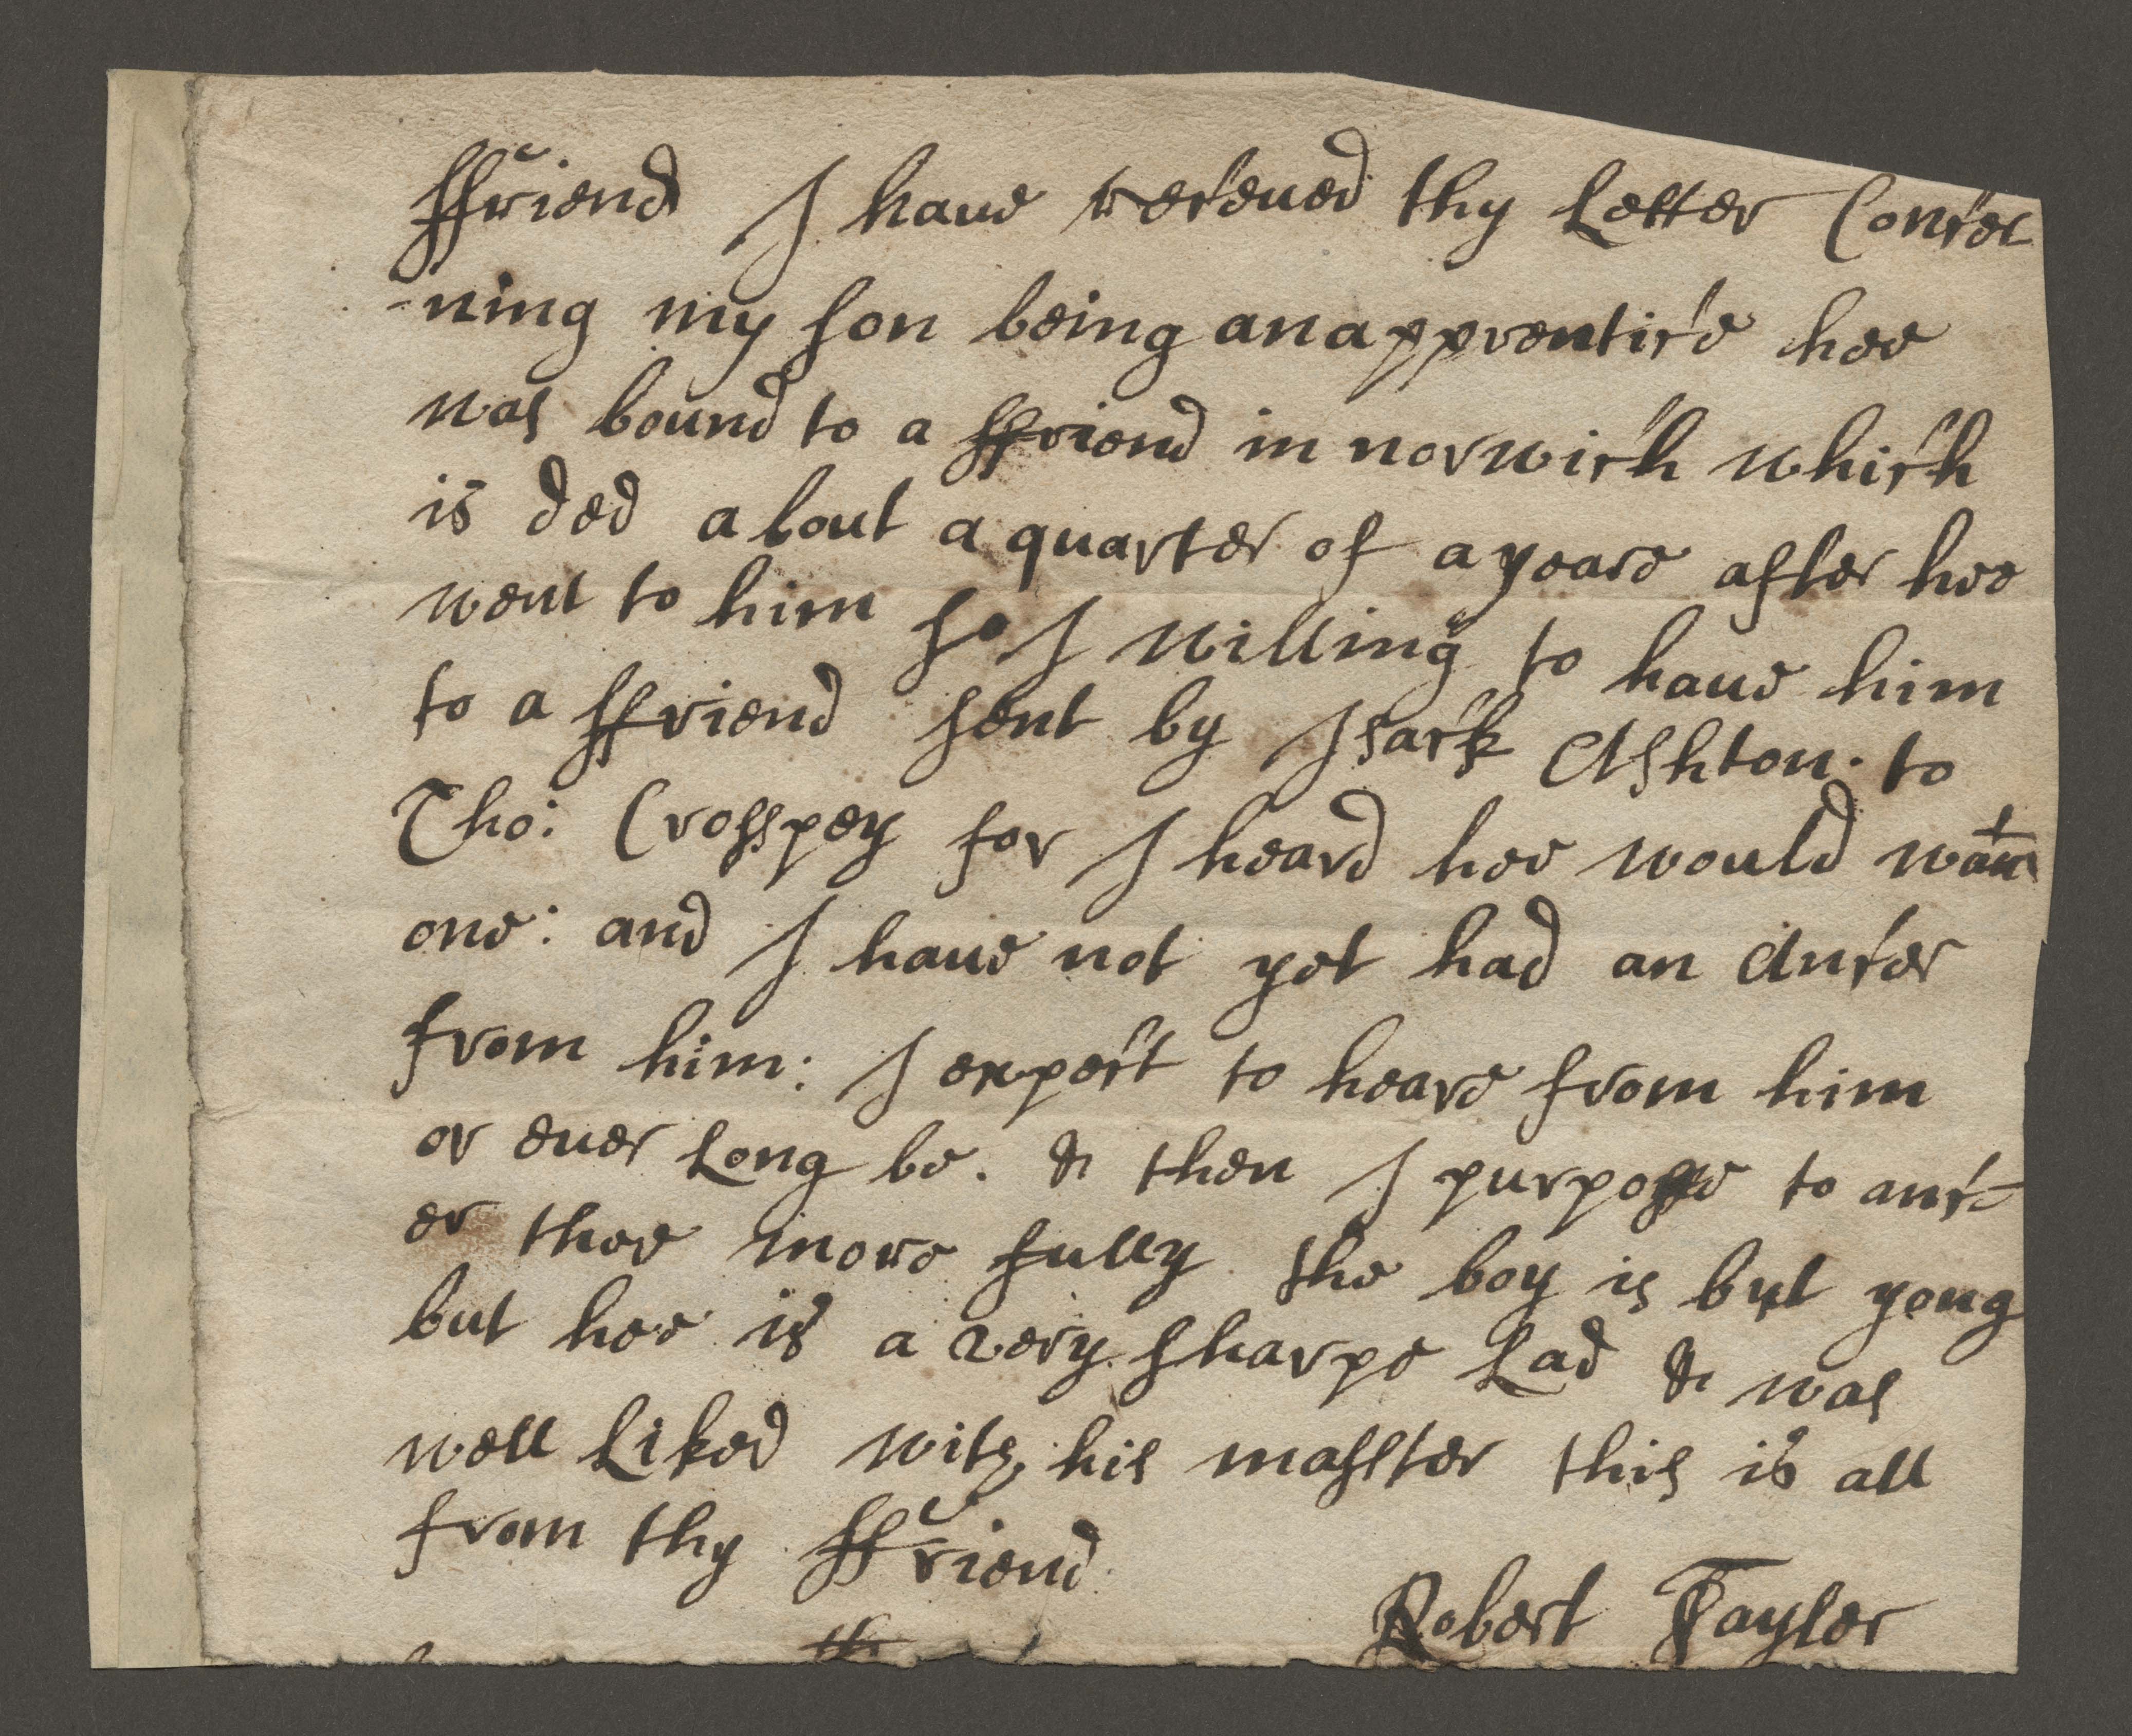 ffriend I haue receued thy Letter Concer
-ning my son being an apprentice hee
was bound to a ffriend in norwich which
is ded about a quarter of a yeare after hee
went to him so I willing to haue him
to a ffriend sent by Isack Ashton. to
Tho: Crosspey for I heard hee would want
one: and I haue not yet had an Ancer
from him: I expect to heare from him
or euer Long be. & then I purpose to anc-
er thee more fully the boy is but yong
but hee is a very sharpe Lad & was
well Liked with his masster this is all
from thy ffriend
Robert Tayler